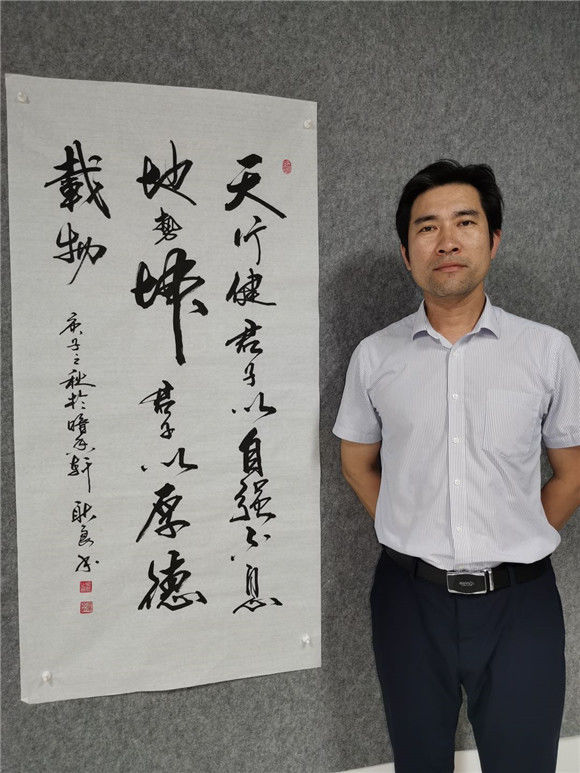 天行健君子以自强不息
地势坤君子以厚德
载物
庚子之秋于曙光轩 耿良书